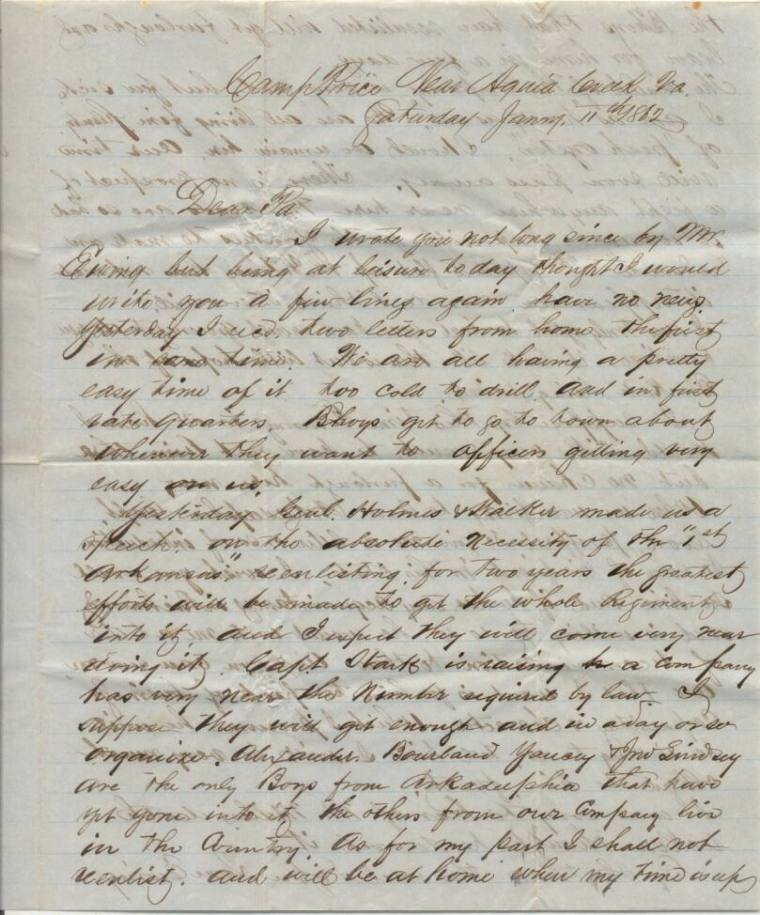 Camp Price Near Aquia Creek Va.
Saturday Jany. 11th 1862
Dear Pa.
I wrote you not long since by Mr.
Ewing but being at leisure today thought I would
write you a few lines again. have no news.
Yesterday I recd. two letters from home the first
in some time. We are all having a pretty
easy time of it too cold to drill and in first
rate quarters. Bhoys get to go to town about
whenever they want to officers getting very
easy on us.
Yesterday Genl. Holmes & Walker made us a
speech on the absolute necessity of the "1st
Arkansas" reenlisting for two years the greatest
efforts will be made to get the whole Regiment
into it and I expect they will come very near
doing it. Capt. Stark is raising a company
has very near the Number required by law. I
suppose they will get enough and in a day or so
organize. Alexander, Bourland Yancey & Jno Lindsey
are the only Boys from Arkadelphia that have
yet gone into it, the others from our Company live
in the Country. As for my part I shall not
reenlist. and will be at home when my time is up